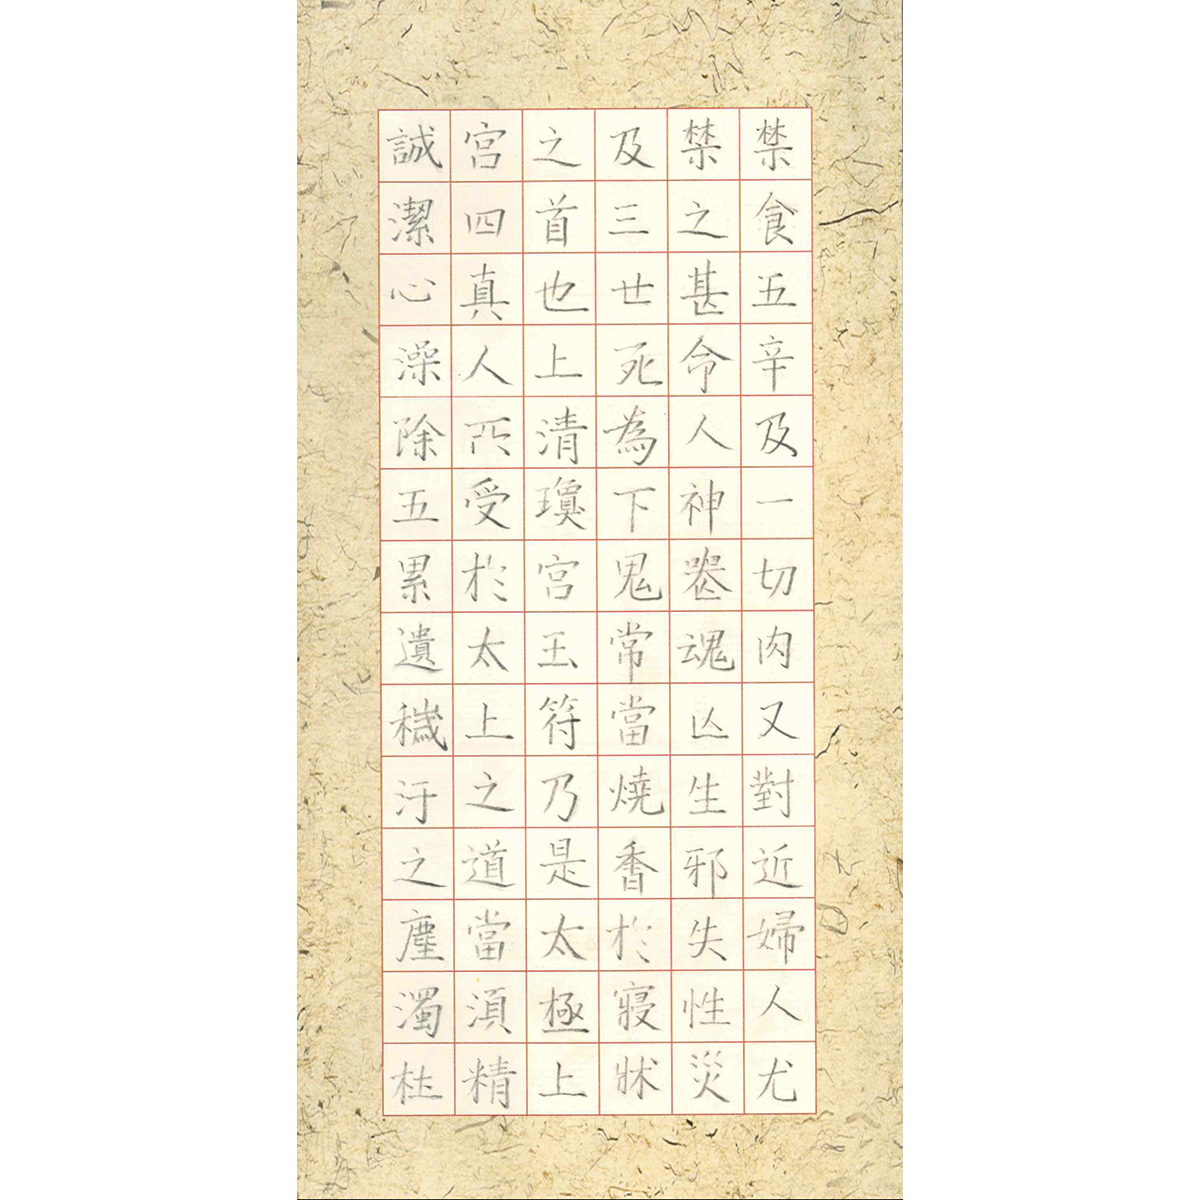 禁食五辛及一切肉又對近婦人尤
禁之甚令人神喪魂亾生邪失性災
及三世死為下鬼常當燒香於寢牀
之首也上清瓊宮玉符乃是太極上
宮四真人所受於太上之道當須精
誠潔心澡除五累遺穢汙之塵濁杜